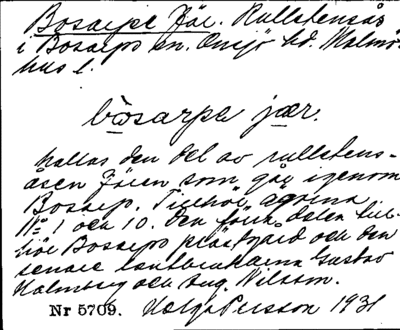 Bosarps Jär. Rullstensås
i Bosarps sn. Onsjö hd. Malmö-
hus l.
bosarpa jær.
kallas den del av rullstens-
åsen Jären som går igenom
Bosarp. Tillhör ägarna
No 1 och 10. den förra delen till-
hör Bosarps prästgård och den
senare lantbrukarna Gustav
Malmberg och Aug. Nilsson.
Nr 5709. Helge Persson 1931